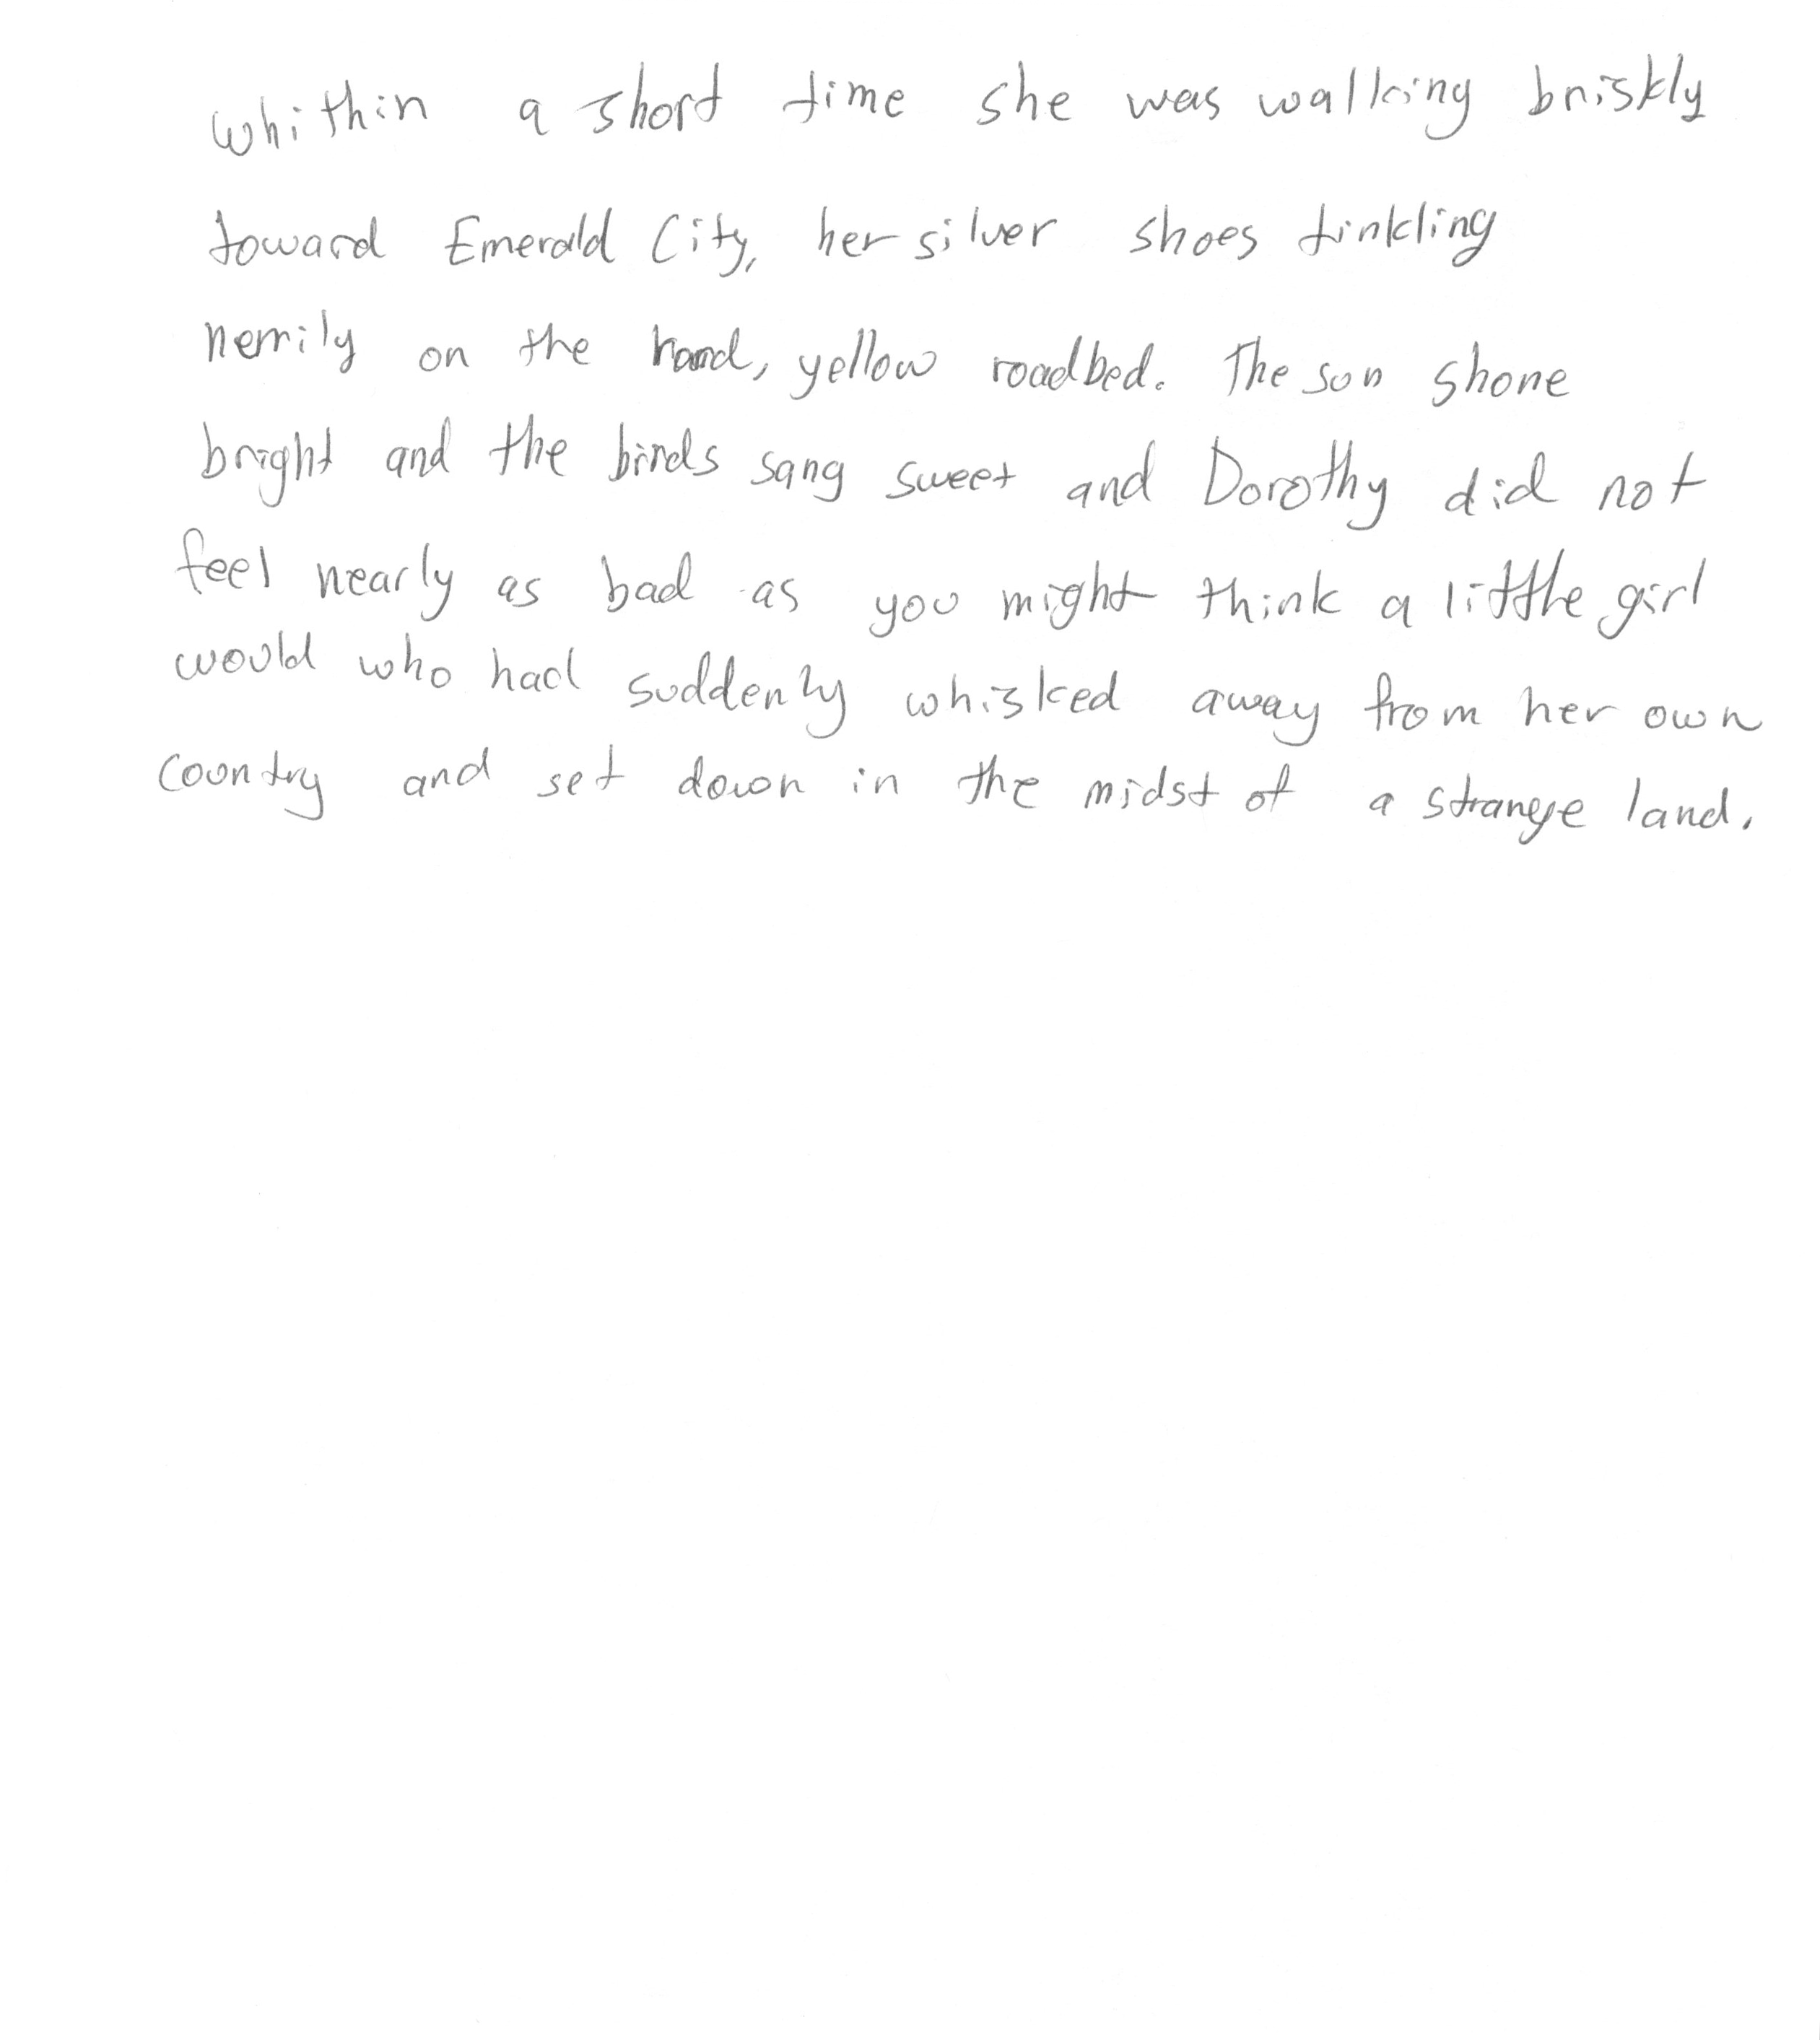 Whithin a short time she was walking briskly
toward Emerald City, her silver shoes tinkling
nerrily on the hard, yellow roadbed. The sun shone
bright and the birds sang sweet and Dorothy did not
feel nearly as bad as you might think a little girl
would who had suddenly whisked away from her own
country and set down in the midst of a strange land.